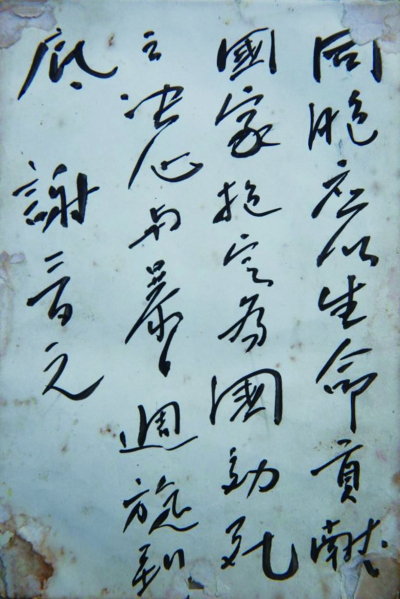 同胞应以生命貢獻
國家抱定為國効死
之决心与暴日週旋到
底 謝晋元